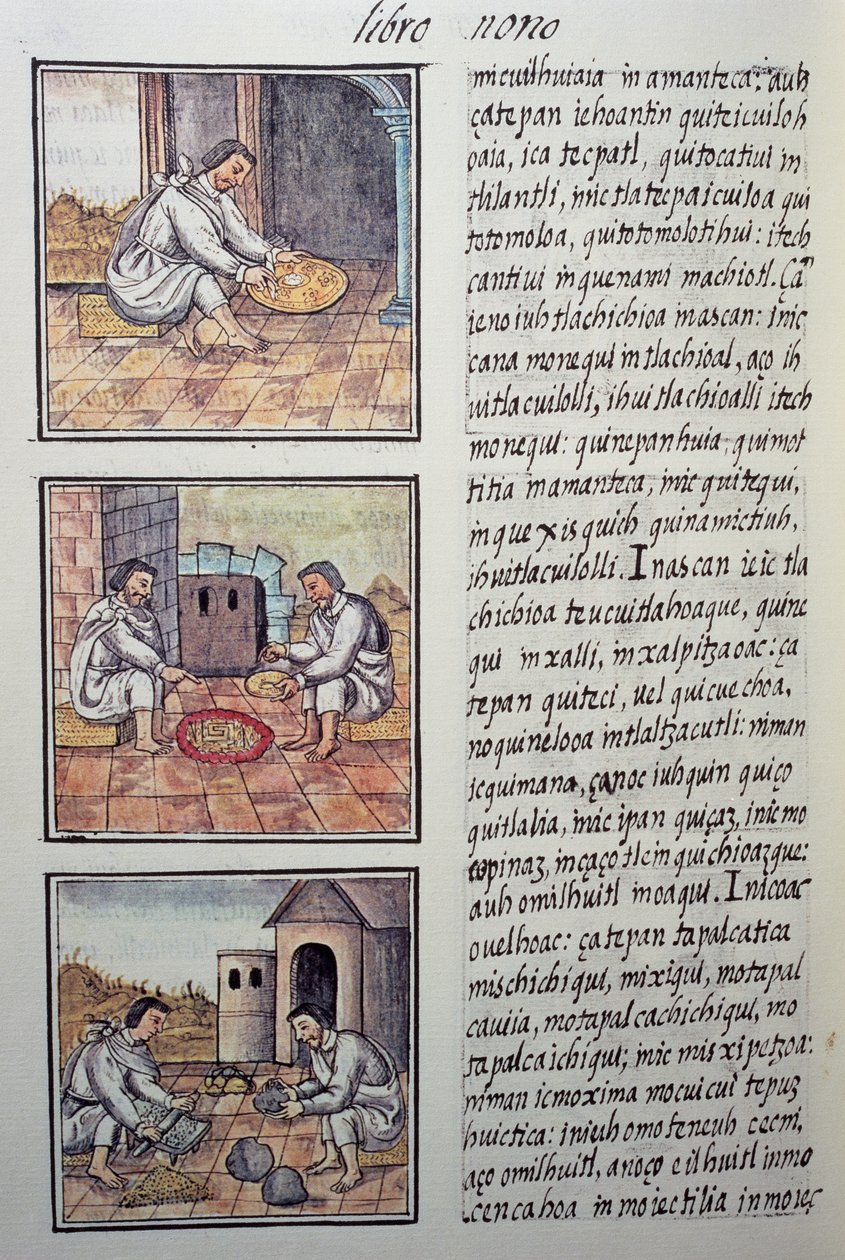 libro nono
micuilhuiaia in amanteca: auh
çatepan iehoantin quiteicuiloh
oaia, ica tecpatl, quitocatiui in
tlilantli, inic tlatecpaicuiloa qui
totomoloa, quitotomolotihui: itech
cantiui in quenami machiotl. Ça
ieno iuh tlachichioa in ascan: inic
cana monequi in tlachioal, aço ih
uitlacuilolli, ihuitlachioalli itech
monequi: quinepanhuia, quimot
titia in amanteca, inic quitequi,
in quexisquich quinamictiuh,
ihuitlacuilolli. In ascan ie ic tla
chichioa teucuitlahoaque, quine
qui in xalli, in xalpitzaoac: ça
tepan quiteci, uel quicuechoa,
noquinelooa in tlaltzacutli: niman
ic quimana, ça noc iuhquin quiço
quitlalia, inic ipan quiçaz, inic mo
copinaz, in çaço tlein quichioazque:
auh omilhuitl in oaqui. In icoac
ouelhoac: çatepan tapalcatica
mischichiqui, mixiqui, motapal
cauiia, motapalcachichiqui, mo
tapalcaichiqui; inic misxipetzoa:
niman ic moxima mocuicui tepuz
huictica: in iuh omoteneuh cecni,
aço omilhuitl, anoço eilhuitl in mo
cencahoa in moiectilia in moiec